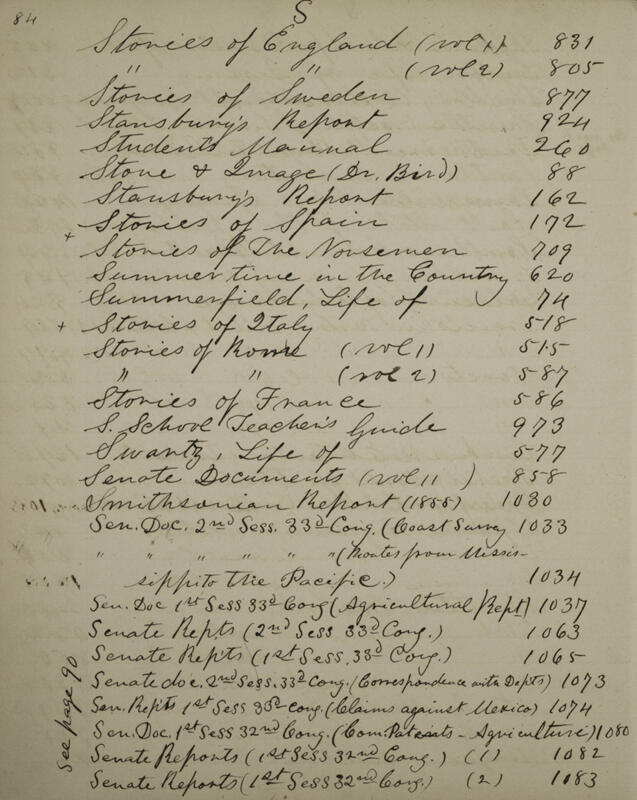 84
S
Stories of England (vol 1) 831
" " (vol 2) 805
Stories of Sweden 877
Stansbury's Report 924
Students Manual 260
Stone & Image (Dr. Bird) 88
Stansbury's Report 162
Stories of Spain 172
+ Stories of The Norsemen 709
Summer time in the Country 620
Summerfield, Life of 74
+ Stories of Italy 518
Stories of Rome (vol 1) 515
" " (vol 2) 587
Stories of France 586
S. School Teacher's Guide 973
Swartz, Life of 577
Senate Documents (vol 11 ) 858
Smithsonian Report (1855) 1030
Sen. Doc. 2nd Sess. 33d Cong. (Coast Survey 1033
" " " " " " (Routes from Missis-
sippi to the Pacific.) 1034
Sen. Doc 1st Sess 33d Cong (Agricultural Rept) 1037
Senate Repts (2nd Sess 33d Cong.) 1063
Senate Repts (1st Sess. 33d Cong.) 1065
Senate doc. 2nd Sess. 33d Cong. (Correspondence with Depts) 1073
Sen. Repts 1st Sess 33d Cong. (Claims against Mexico) 1074
Sen. Doc. 1st Sess 32nd Cong. (Com. Patents - Agriculture) 1080
Senate Reports (1st Sess 32nd Cong.) (1) 1082
Senate Reports (1st Sess 32nd Cong.) (2) 1083
See page 90